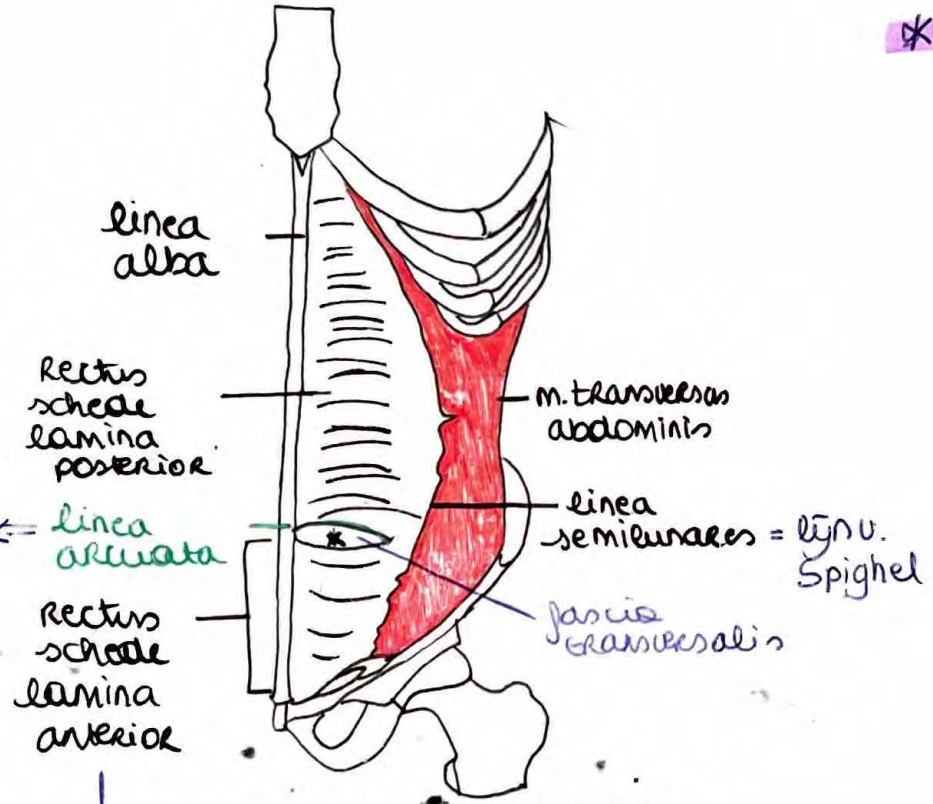 linea
alba
Rectus
schede
lamina
posterior
m. transversus
abdominis
⇐ linea
arcuata
linea
semilunares = lijn v.
Spighel
fascia
transversalis
Rectus
schede
lamina
anterior